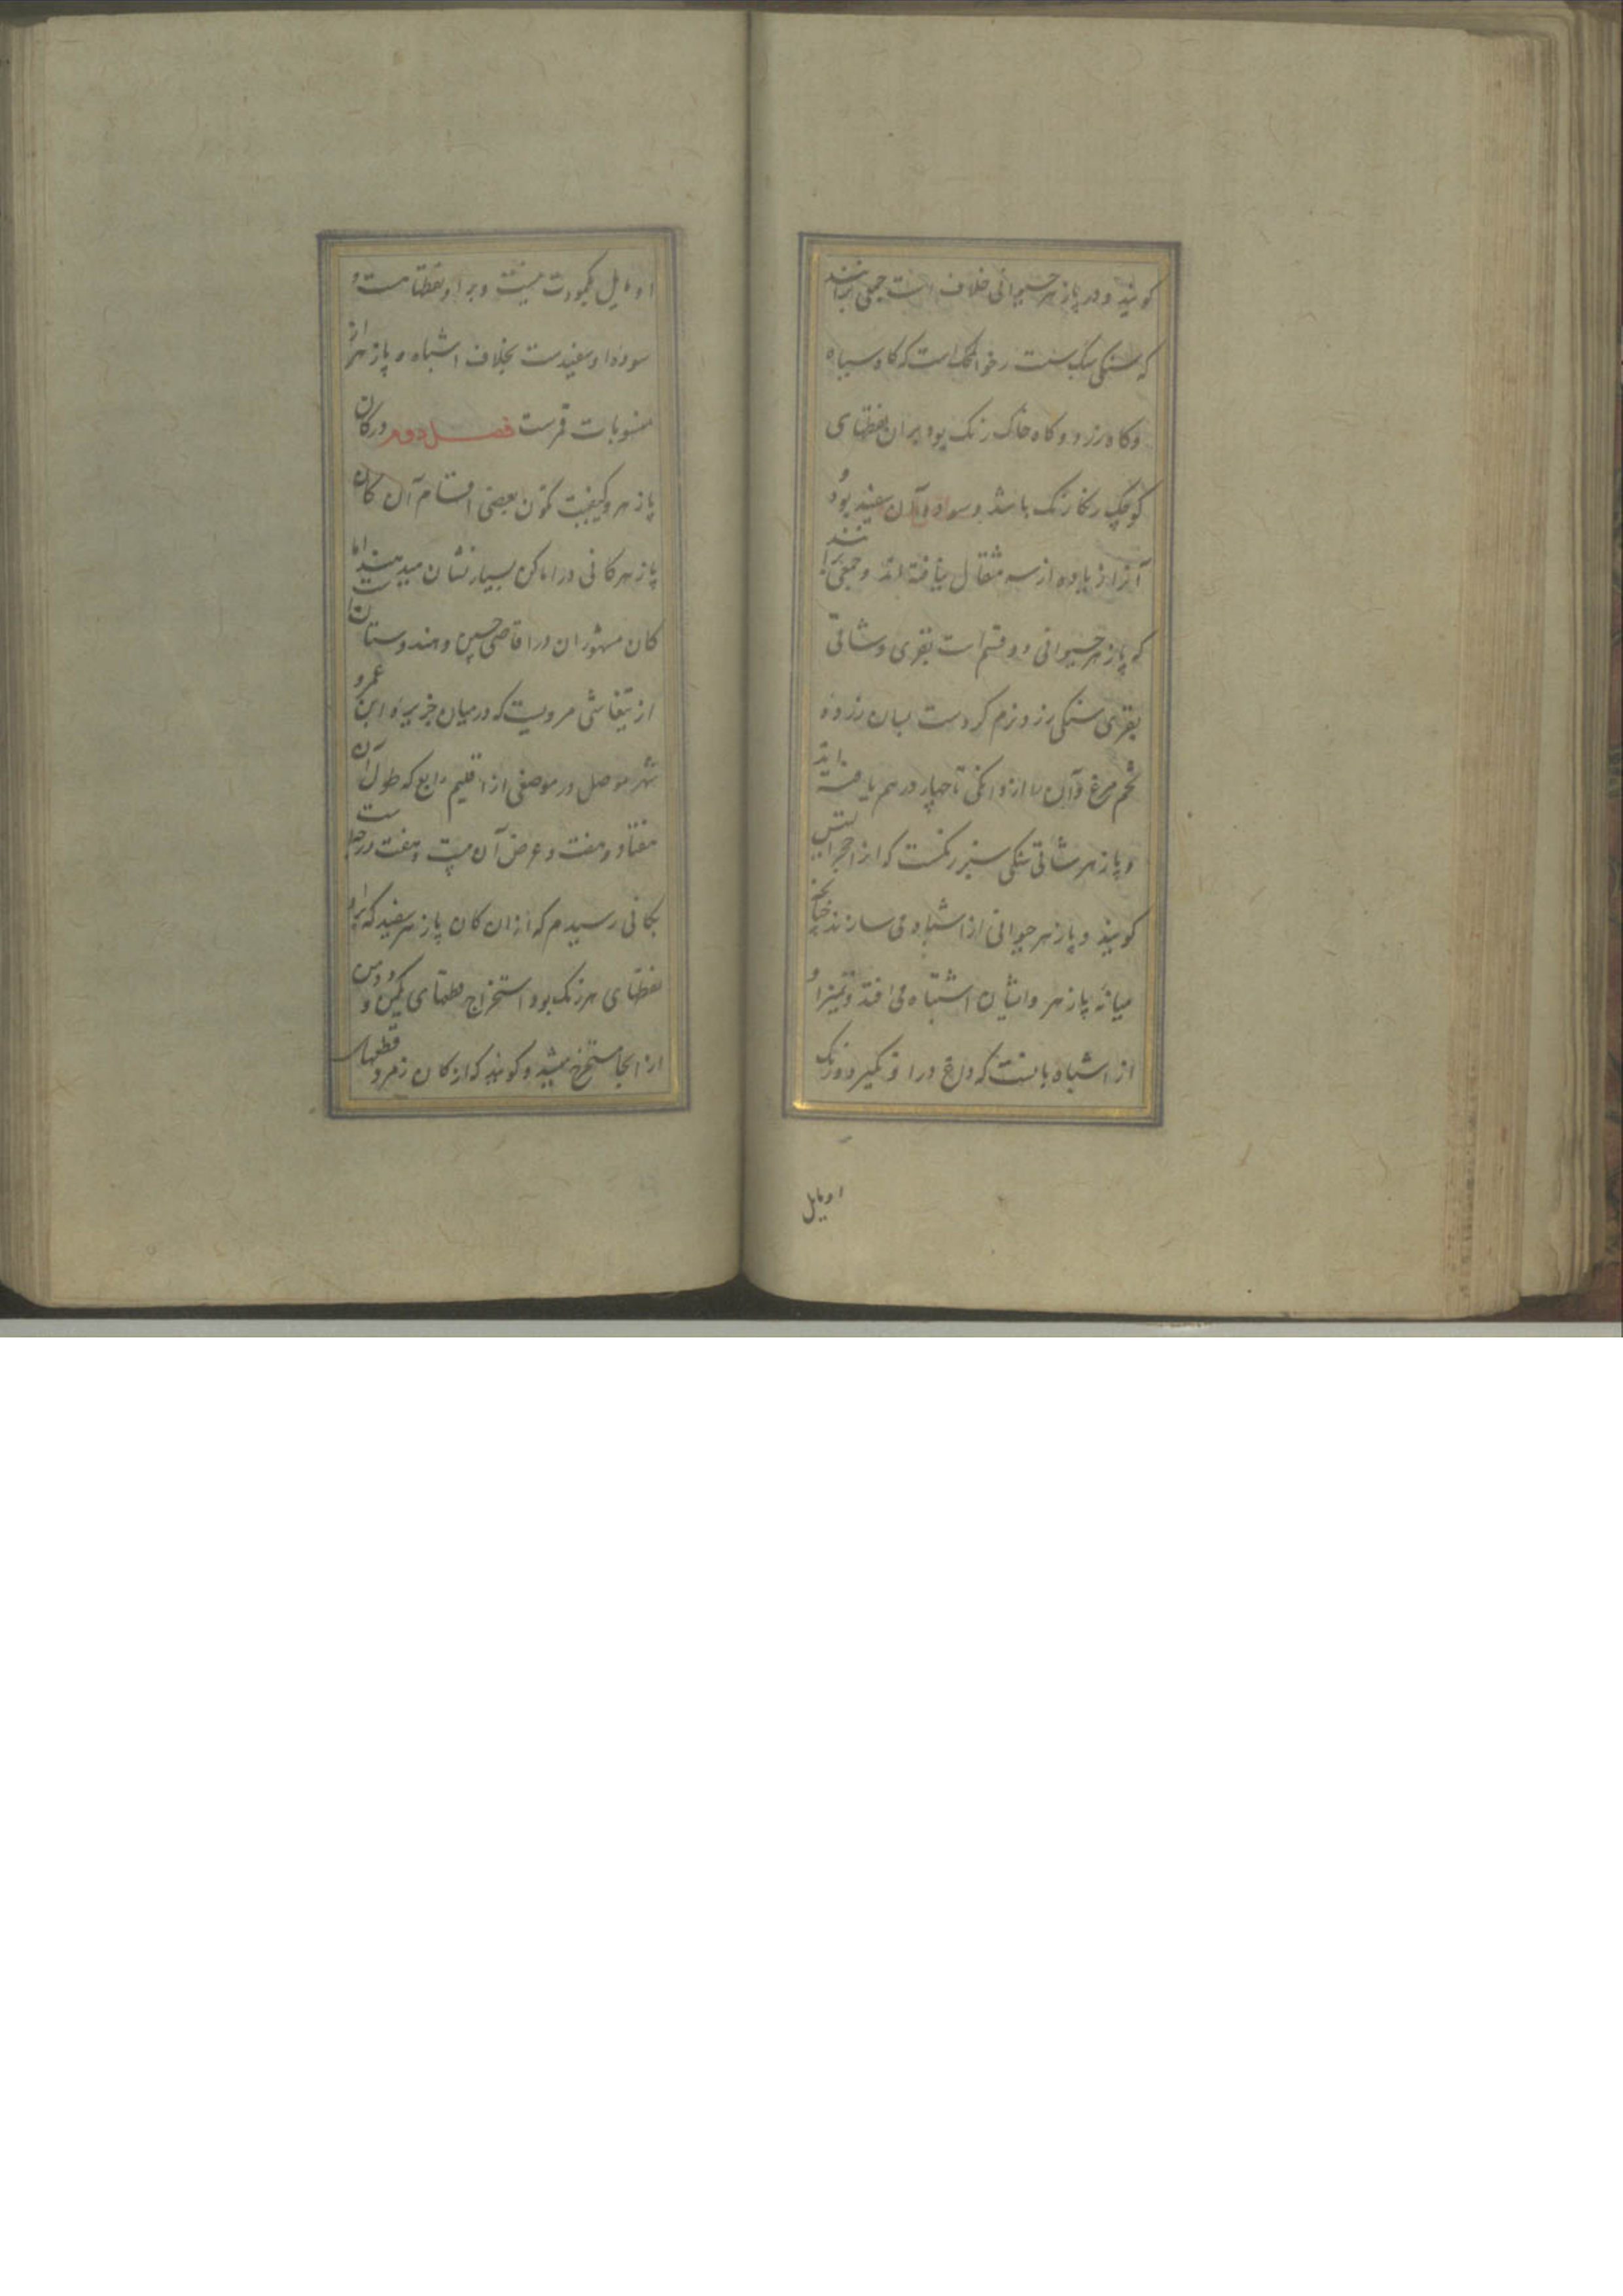 کویند و در پازهر حیوانی خلاف است جمعی برانند
که سنکی سبک سست رخوالمحک است که کاه سیاه
و کاه زرد و کاه خاک رنک بود بر آن نقطهای
کوچک رنک باشد و سوده آن سفید بود
آنرا زیاده از سه مثقال نیافته اند و جمعی برانند
که پازهر حیوانی دو قسم است بقری و شاتی
بقری سنکی زرد و نرم کردست بسان زرده
تخم مرغ و آن را از دانکی تا چهار درهم یافته اند
و پازهر شاتی سنکی سبز رنکست که از احجرالتیس
کویند و پازهر حیوانی از اشباه می سازند چنانچه
میانه پازهر و ایشان اشتباه می افتد و تمیز او
از اشباه بانست که داغ در او نکیرد و رنک
او مایل
او مایل بکبودت نیست و بر او نقطها هست و
سوده او سفیدست بخلاف اشباه و پازهر از
منسوبات قمرست فصل دوم در کان
پازهر و کیفیت تکون بعضی اقسام آن کان
پازهر کانی در اماکن بسیار نشان میدهند اما
کان مشهور ان در اقاصی چین و هندوستانست
از تیفاشی مرویست که در میان جزیره ابن عمرو
شهر موصل در موضعی از اقلیم رابع که طول آن
هفتاد و هفت و عرض آن سی و هفت درجه است
بکانی رسیدم که از ان کان پازهر سفید که برو
نقطهای هر رنک بود استخراج قطعهای یکمن و دومن
از انجا مستخرج میشد و کویند که از کان زمرد قطعهای